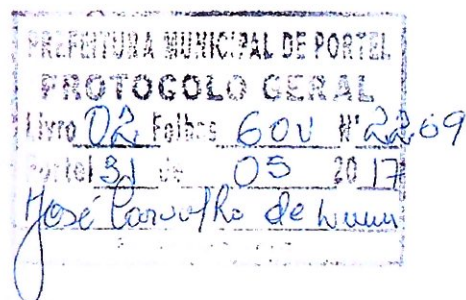 PREFEITURA MUNICIPAL DE PORTEL
PROTOCOLO GERAL
Livro 02 Folhas 60v Nº 2269
Portel 31 de 05 2017
José Carvalho de